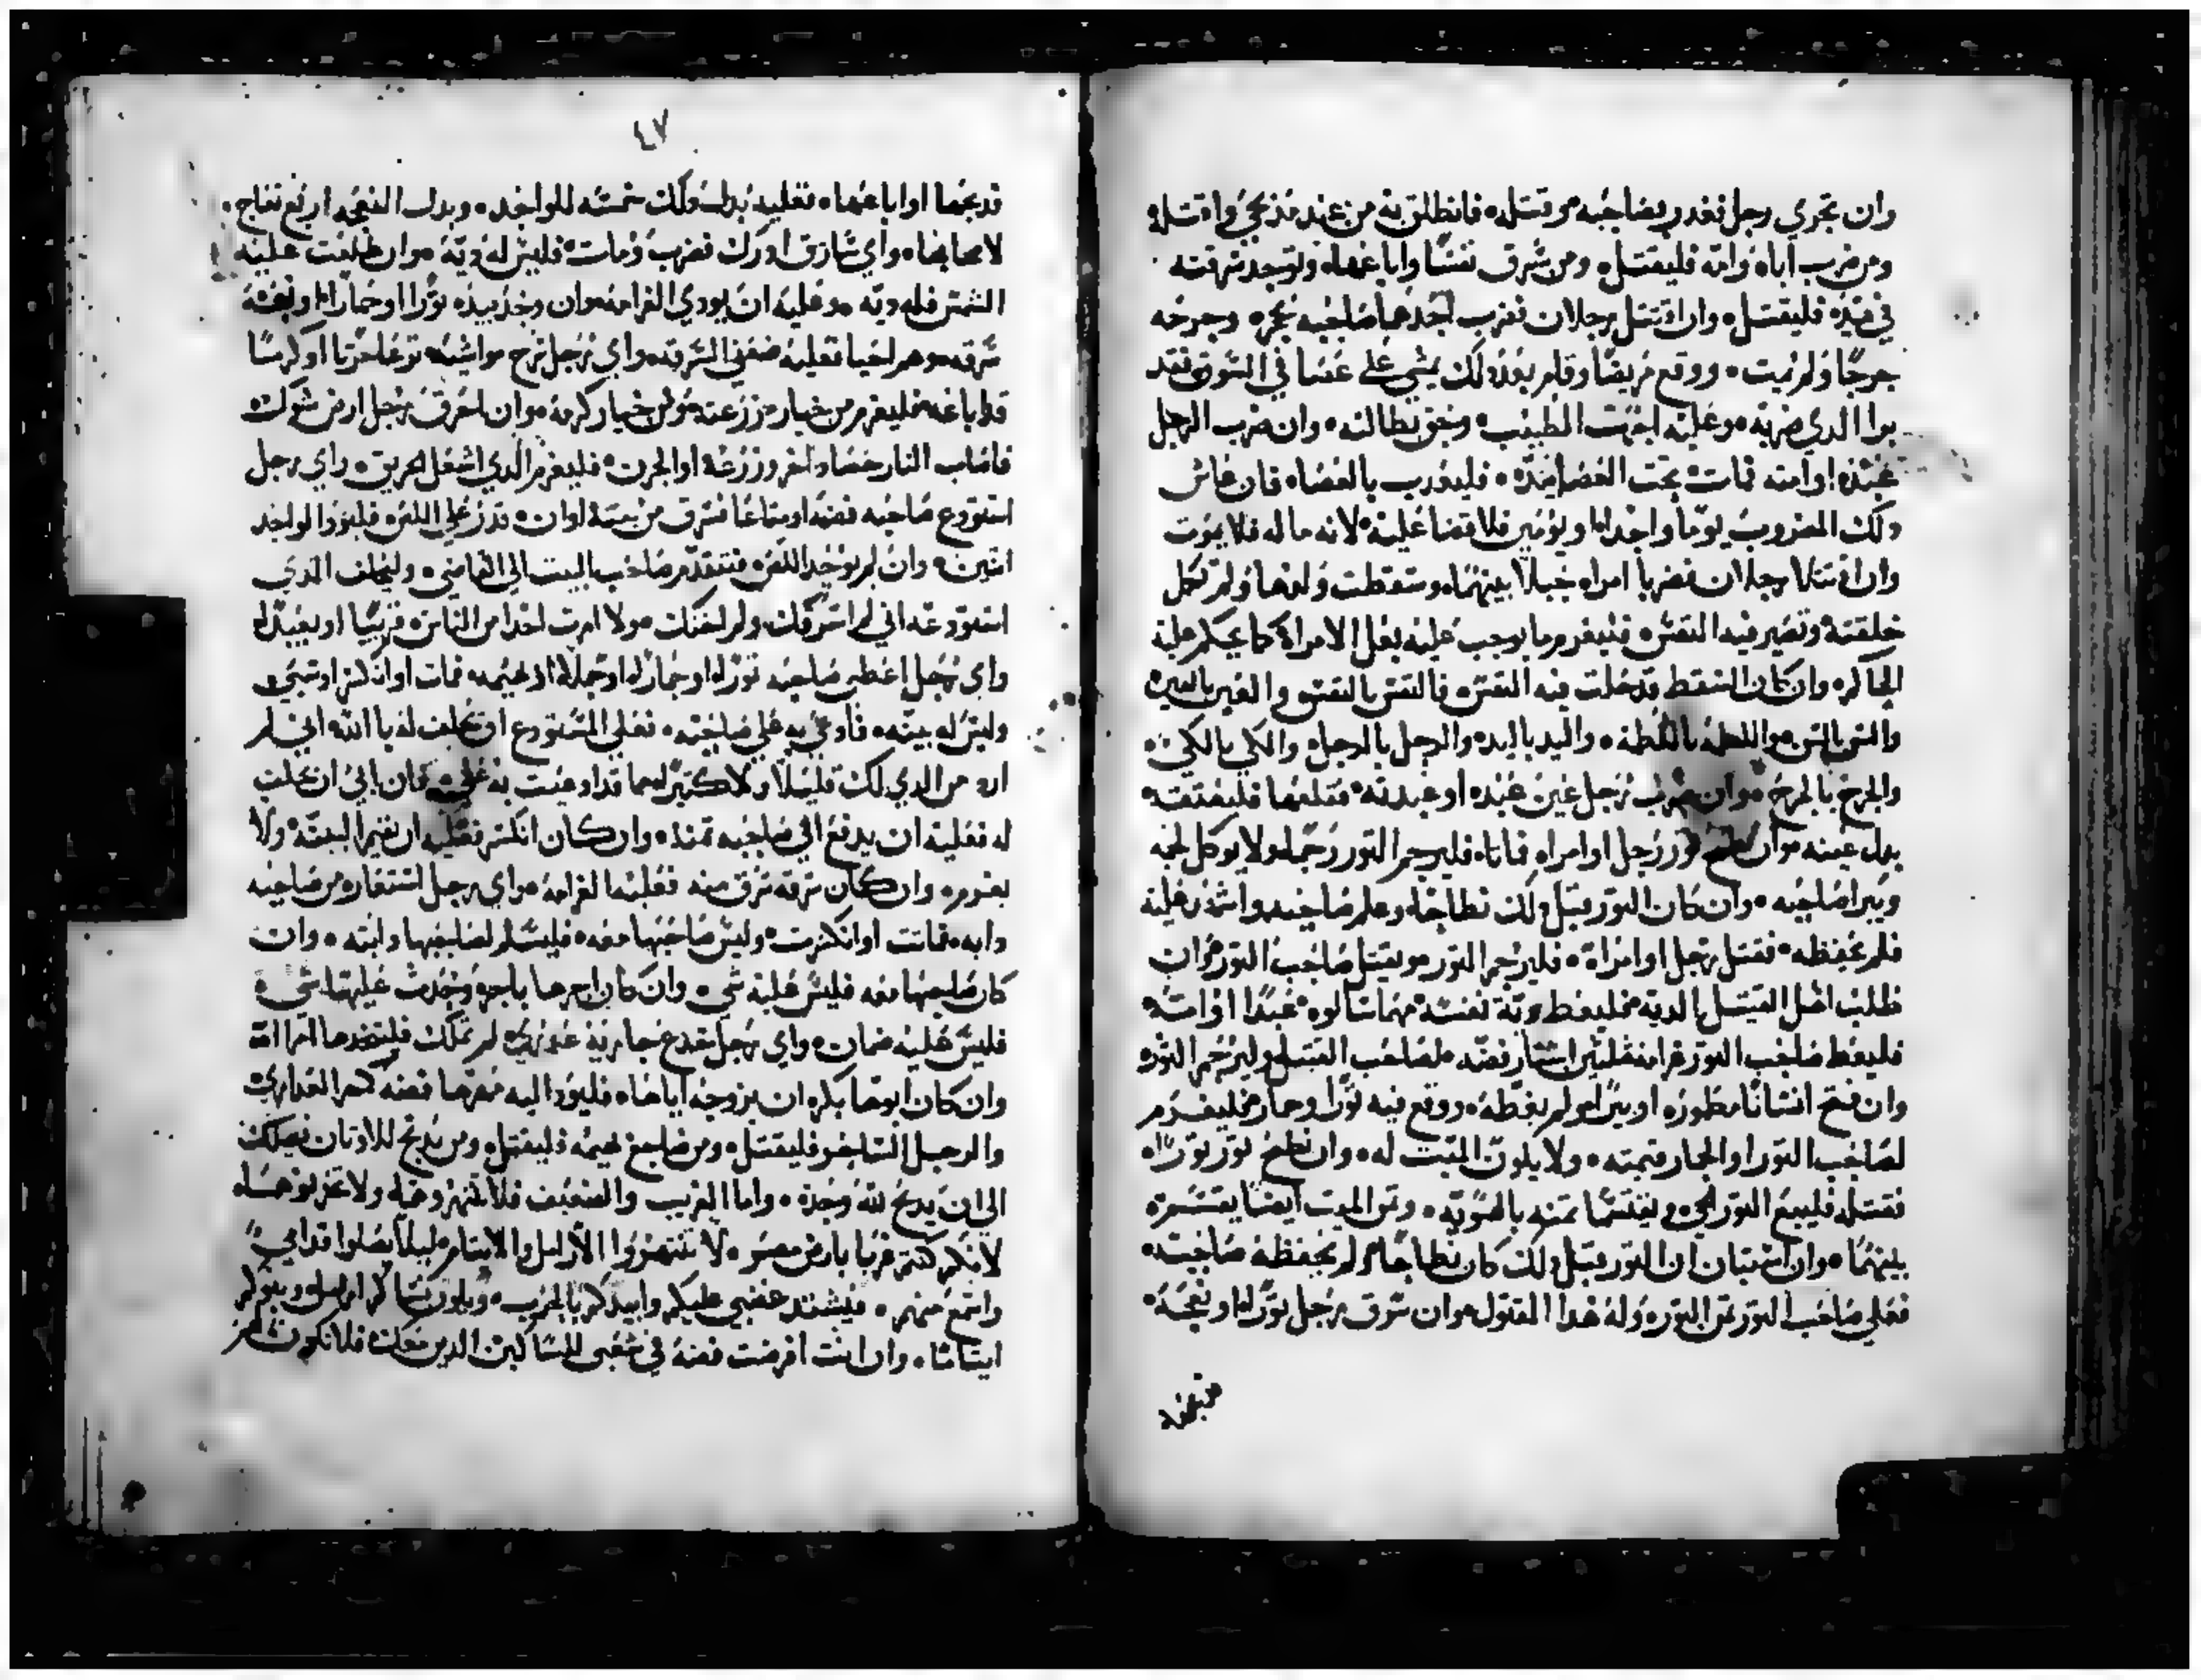 وان تجري رجل فغدر بصاحبه وقتله فانطلق به من عند مذبحي واقتله
ومن ضرب اباه وامه فليقتل ومن سرق نفسا واباعها وتوجد سرقته
في يده فليقتل وان اقتتل رجلان فضرب احدهما صاحبه بحجر وجرحه
جرحا ولم يمت ووقع مريضا وقام بعد دلك يمشي على عصا في السوق فقد
برا الدي ضربه وعليه اجرت الطبيب وبحق بطالته وان ضرب الرجل
عبده او امته فمات تحت العصا فليعدب بالعصا فان عاش
دلك المضروب يوما واحدا او يومين فلا قضا عليه لانه ماله فلا يموت
وان اقتتلا رجلان فضربا امراه حبلا بينهما وسقطت ولدها ولم تكمل
خلقته وتصير فيه النفس فليغرم ما يوجب عليه بعل الامراة كما يحكم عليه
الحاكم وان كان السقط قد حلت فيه النفس فالنفس بالنفس والعين بالعين
والسن بالسن واللطمه باللطمه واليد باليد والرجل بالرجل والكي بالكي
والجرح بالجرح وان ضرب رجل عين عبده او عبدته فقلعها فليعتقه
بدل عينه وان نطح ثور رجل او امراه فماتا فليرجم التور رجما ولا يوكل لحمه
ويبرا صاحبه وان كان التور قبل دلك نطاحا وعلم صاحبه واشهد عليه
فلم يحفظه فقتل رجل او امراة فليرجم التور ويقتل صاحب التور وان
طلب اهل القتيل الديه فليعط دية نفسه مهما سالوه عبدا او امته
فليعط صاحب التور غرامة ثلثين استار فضه لصاحب القتيل وليرجم التور
وان فتح انسانا مطوره او بيرا ولم يغطه ووقع فيه تورا وحمار فليغرم
لصاحب التور او الحمار قيمته ولا يكون الميت له وان نطح تور تورا
فقتله فليبع التور الحي ويقتسما تمنه بالسويه وتمن الميت ايضا يقتسمه
بينهما وان استبان ان التور قبل دلك كان نطاحا ولم يحفظه صاحبه
فعلى صاحب التور تمن التور وله هدا المقتول وان سرق رجل تورا او نعجة
قدبحها او اباعها فعليه بدل دلك خمسه للواحد وبدل النعجه اربع نعاج
وأي سارق ادرك فضرب ومات فليس له دية وان طلعت عليه
الشمس فله ديه وعليه ان يودي الغرامه وان وجد بيده تورا او حمارا او نعجة
سرقه وهم احيا فعليه ضعفي السرقه واي رجل سرح مواشيه ترعا حرتا او كرمسا
قد اباغه فليغرم من خيار زرعته ومن خيار كرمه وان احرق رجل ارض شوك
فاصاب النار حصاد اخر وزرعه او الجرن فليغرم الدي اشعل الحريق واي رجل
استودع صاحبه فضه او متاعا فسرق من بيته وان قدر على اللص فليؤد الواحد
اتنين وان لم يوجد اللص فليتقدم صاحب البيت الى القاضي وليحلف الدي
استودعه اني لم اسرقك ولم اخنك ولا امرت احدا من الناس قريبا او بعيدا
واي رجل اعطى صاحبه تورا او حمارا او جملا او بهيمه فمات او انكسر او سبي
وليس له بينه فادعي به على صاحبه فعلى المستودع ان يحلف له بالله اني لم
ارد من الدي لك قليلا ولا كتيرا مما قد ادعيت به علي فان ابى ان يحلف
له فعليه ان يدفع الى صاحبه تمنه وان كان انكسر فعليه ان يقيم البينة ولا
يغرم وان كان سرقه سرق منه فعليه الغرامه واي رجل استعاره من صاحبه
دابه فماتت او انكسرت وليس صاحبها معه فليسلم لصاحبها دابته وان
كان صاحبها معه فليس عليه شي وان كان اجرها باجره وحدث عليها شي
فليس عليه ضمان واي رجل خدع جارية عدرى لم تملك فليتخدها امراة
وان كان ابوها يكره ان يزوجه اياها فليؤد اليه مهرها فضه كمهر العدارى
والرجل الساحر فليقتل ومن ضاجع بهيمه فليقتل ومن يدبح للاوتان فيهلك
الى ان يدبح لله وحده واما الغريب والضعيف فلا تنهروهما ولا تحزنوهما
لانكم كنتم غربا بارض مصر لا تنتهروا الارامل والايتام ليلا يصلوا قدامي
واسمع منهم فيشتد غضبي عليكم وابيدكم بالحرب ويكون نساكم ارامل وبنوكم
ايتاما وان انت اقرضت فضه في شعبي للمساكين الدين معك فلا تكون